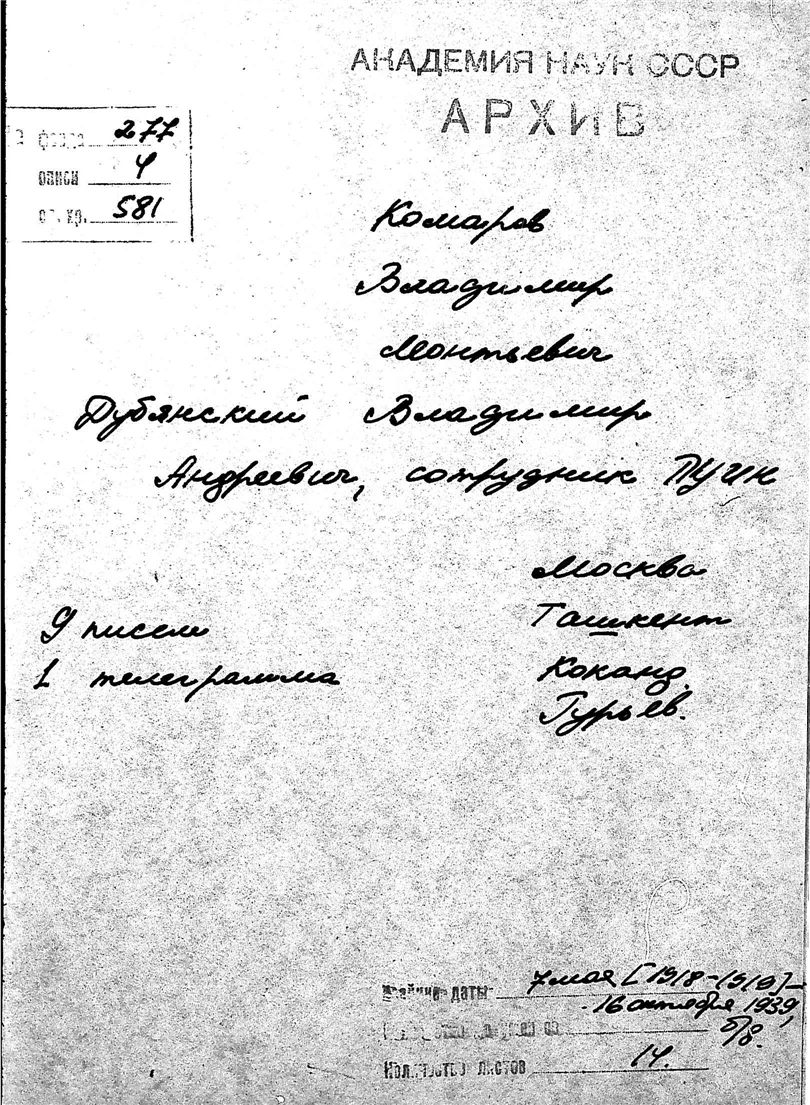 АКАДЕМИЯ НАУК СССР
АРХИВ
фонда 277
описи 4
ед. хр. 581
Комаров
Владимир
Леонтьевич
Дубянский Владимир
Андреевич, сотрудник
Москва
9 писем Ташкент
1 телеграмма Коканд,
Гурьев.
Крайние даты 7 мая [1918-1919]-
16 октября 1939,
б/д.
Количество листов 14.